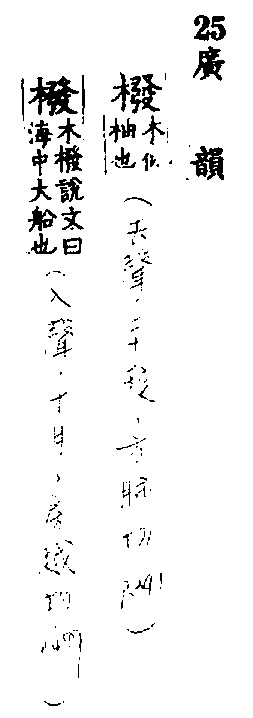 25廣韻
橃木似柚也(去聲.二十廢,方肺切)
橃木橃說文曰海中大船也(入聲.十月,房越切)